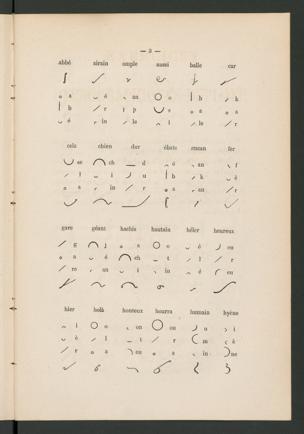 — 3 —
abbé airain ample aussi balle car
a é an o b k
b r p se a a
é in le i le r
cela chien dur éhate encan fer
se ch d é an f
l i u b k è
a in r a an r
gare géant hachis hautain héler heureux
g j a o é eu
a é ch t l r
re an i in é eu
hier holà honteux hourra humain hyène
i o on ou u i
è l t r m è
r a eu a in ne